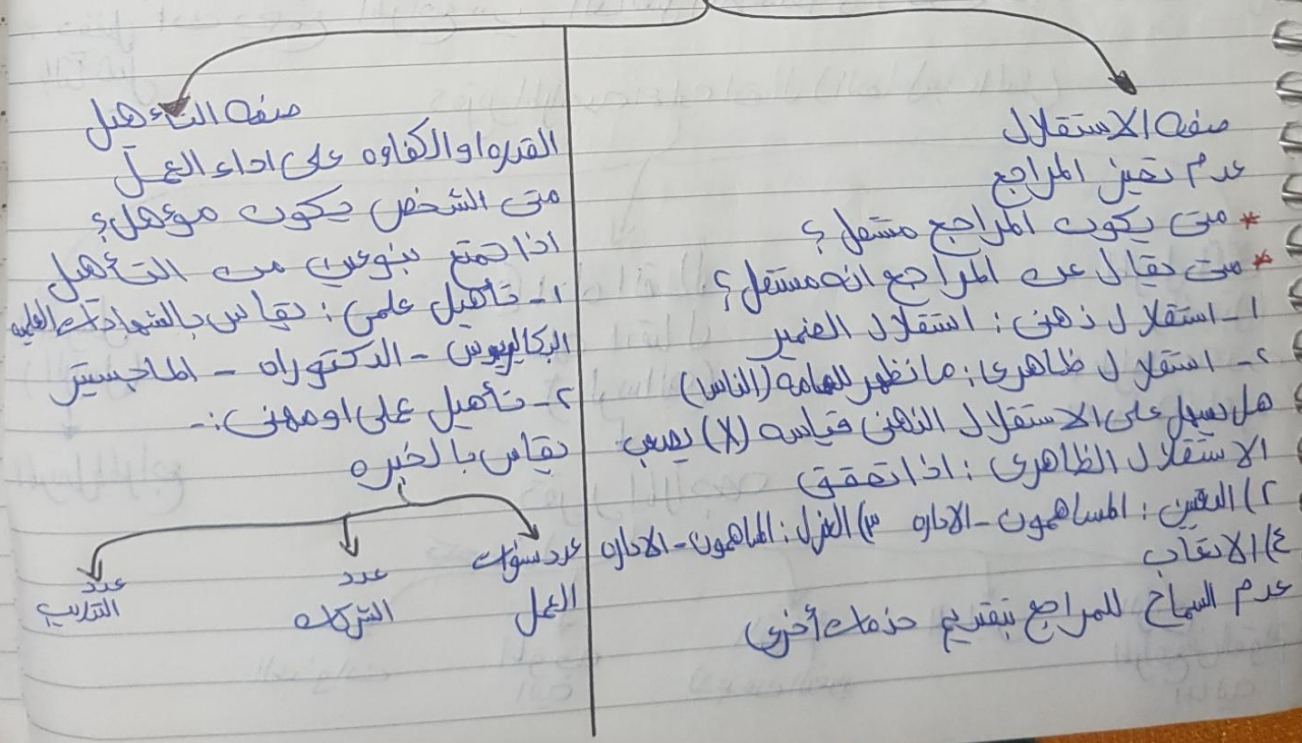 صفه الاستقلال
عدم تحيز المراجع
* متى يكون المراجع مستقل ؟
* متى يقال عن المراجع انه مستقل ؟
١- استقلال ذهنى : استقلال الضمير
٢- استقلال ظاهرى : ما نظهر للعامه (الناس)
هل يسهل على الاستقلال الذهنى قياسه (لا) يصعب
الاستقلال الظاهرى : اذا تحقق
٢) التعيين : المساهمون - الاداره ٣) العزل : المساهمون - الاداره
٤) الاتعاب
عدم السماح للمراجع بتقديم خدمات أخرى
صفه التأهيل
القدره او الكفاوه على اداء العمل
متى الشخص يكون مؤهل ؟
اذا تمتع بنوعين من التأهيل
١- تأهيل علمى : يقاس بالشهادات العلميه
البكاليريوس - الدكتوراه - الماجستير
٢- تأهيل على او مهنى :-
يقاس بالخبره
عدد سنوات
العمل
عدد
الشركات
عدد
التدريب